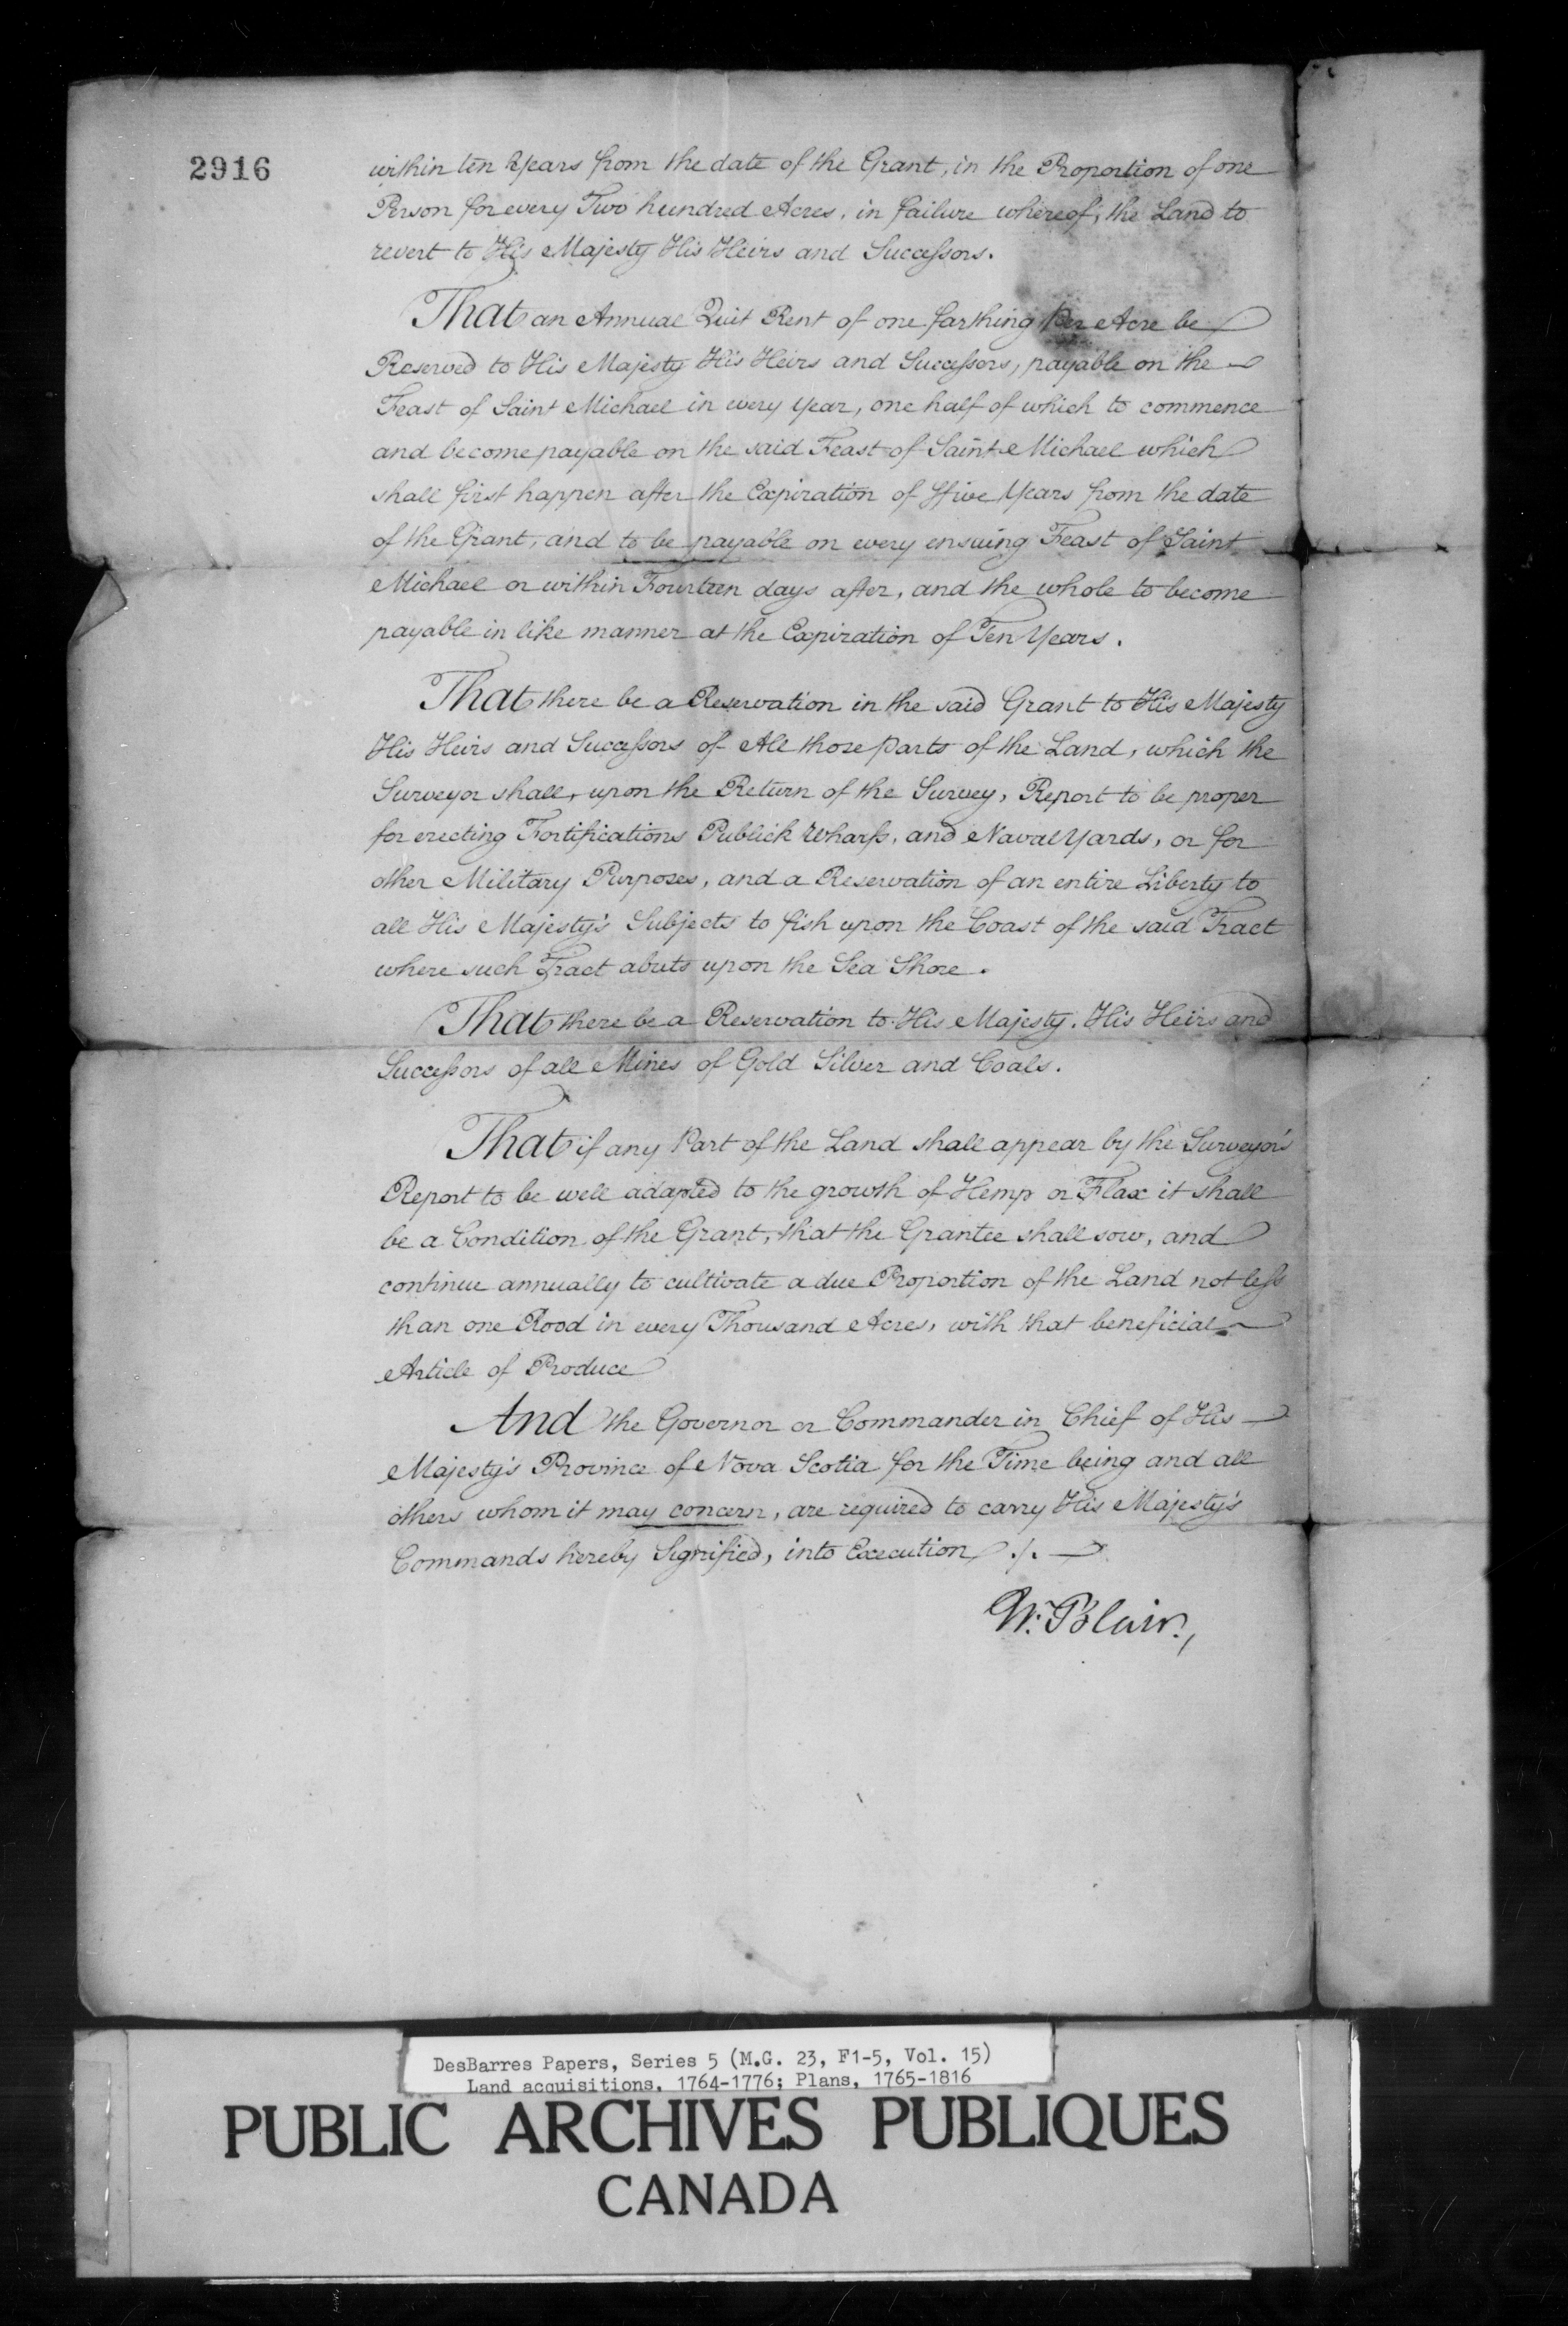 2916
within ten Years from the date of the Grant, in the Proportion of one
Person for every Two hundred Acres, in failure whereof, the Land to
revert to His Majesty His Heirs and Successors.
That an Annual Quit Rent of one farthing per Acre be
Reserved to His Majesty His Heirs and Successors, payable on the
Feast of Saint Michael in every Year, one half of which to commence
and become payable on the said Feast of Saint Michael which
shall first happen after the Expiration of ffive Years from the date
of the Grant, and to be payable on every ensuing Feast of Saint
Michael or within Fourteen days after, and the whole to become
payable in like manner at the Expiration of Ten Years.
That there be a Reservation in the said Grant to His Majesty
His Heirs and Successors of All those parts of the Land, which the
Surveyor shall, upon the Return of the Survey, Report to be proper
for erecting Fortifications Publick Wharfs, and Naval Yards, or for
other Military Purposes, and a Reservation of an entire Liberty to
all His Majesty's Subjects to fish upon the Coast of the said Tract
where such Tract abuts upon the Sea Shore.
That there be a Reservation to His Majesty. His Heirs and
Successors of all Mines of Gold Silver and Coals.
That if any Part of the Land shall appear by the Surveyor's
Report to be well adapted to the growth of Hemp or Flax it shall
be a Condition of the Grant, that the Grantee shall sow, and
continue annually to cultivate a due Proportion of the Land not less
than one Rood in every Thousand Acres, with that beneficial
Article of Produce
And the Governor or Commander in Chief of His
Majesty's Province of Nova Scotia for the Time being and all
others whom it may concern, are required to carry His Majesty's
Commands hereby Signified, into Execution ./.
W. Blair.,
DesBarres Papers, Series 5 (M.G. 23, F1-5, Vol. 15)
Land acquisitions, 1764-1776; Plans, 1765-1816
PUBLIC ARCHIVES PUBLIQUES
CANADA